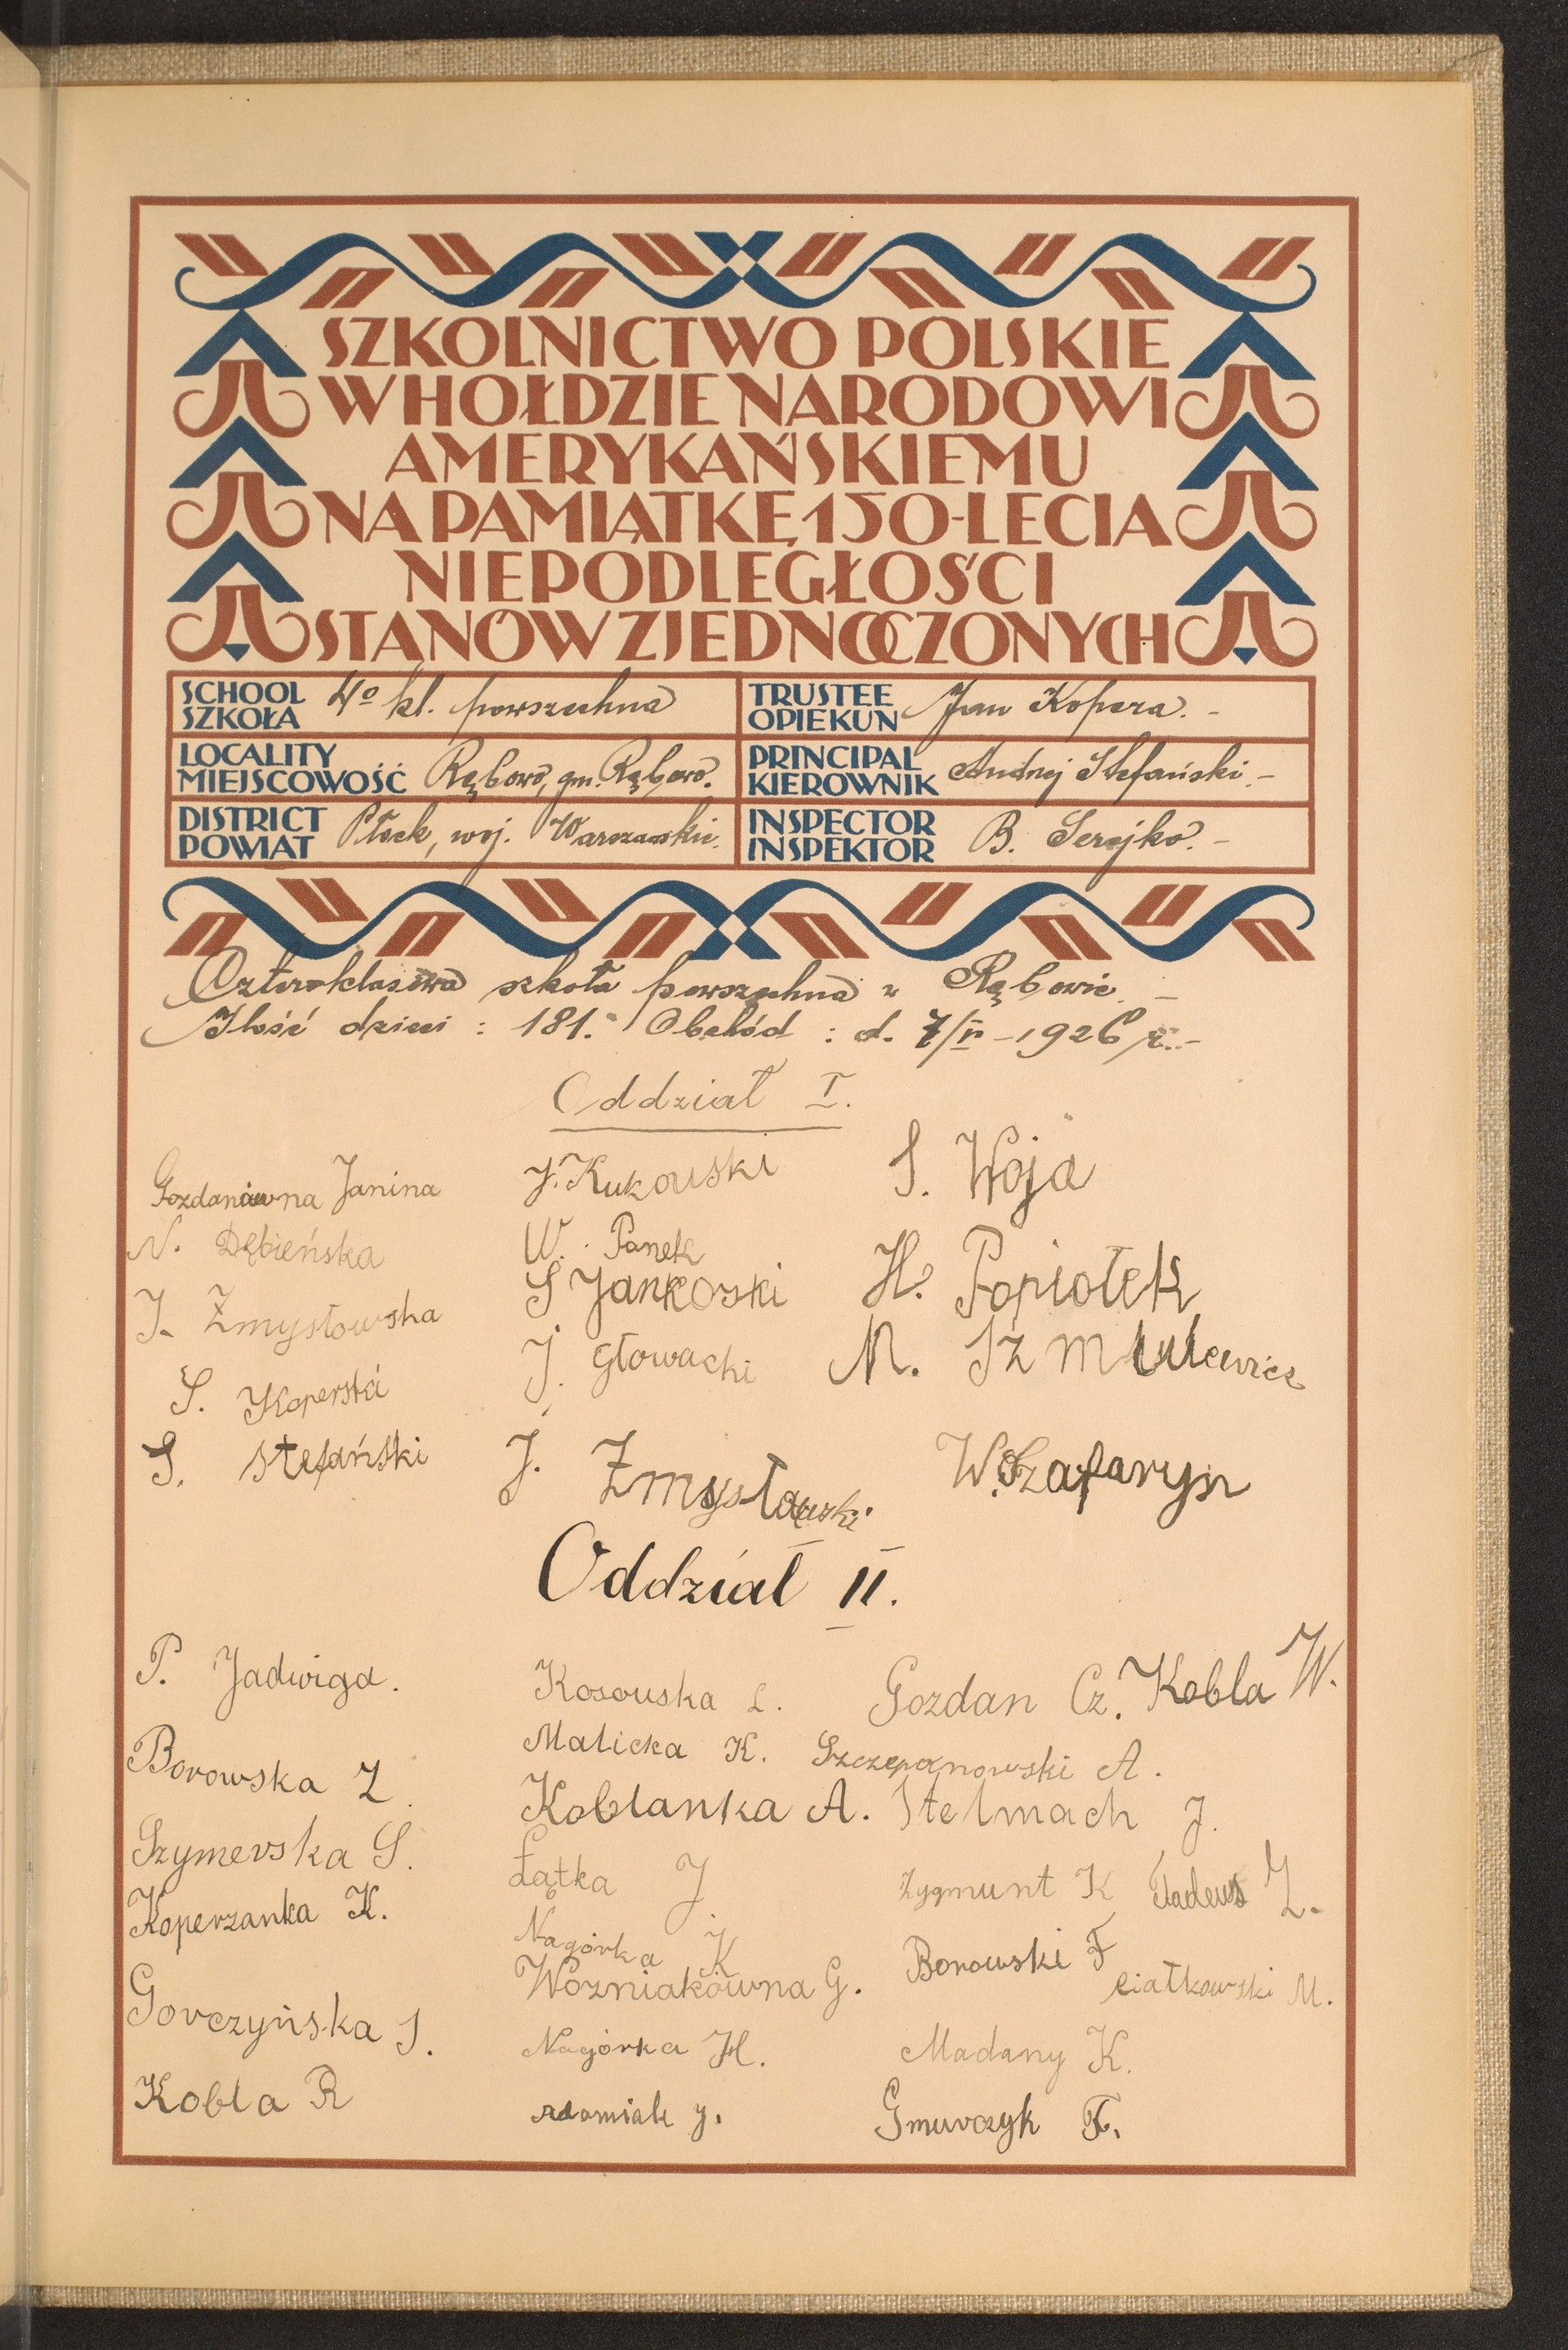 SZKOLNICTWO POLSKIE
W HOŁDZIE NARODOWI
AMERYKAŃSKIEMU
NA PAMIĄTKĘ 150-LECIA
NIEPODLEGŁOŚCI
STANÓW ZJEDNOCZONYCH
SCHOOL
SZKOŁA 4º kl. powszechna
TRUSTEE
OPIEKUN Jan Kopera. -
LOCALITY
MIEJSCOWOŚĆ Rębowo, gm. Rębowo.
PRINCIPAL
KIEROWNIK Andrzej Stefański -
DISTRICT
POWIAT Płock, woj. Warszawskie.
INSPECTOR
INSPEKTOR B. Serejko. -
Czteroklasowa szkoła powszechna w Rębowie. -
Ilość dzieci : 181. - Obchód : d. 7/V - 1926 r. -
Oddział I.
Gozdanówna Janina
N. Dębieńska
J. Zmysłowska
S. Koperski
S. Stefański
J. Kukowski
W. Panek
S Jankoski
J. Głowacki
J. Zmysłowski
S. Woja
H. Popiołek
M. Szmulewicz
W. Szafaryn
Oddział II.
P. Jadwiga.
Borowska Z.
Szymerska S.
Koperzanka K.
Gorczyńska J.
Kobla R
Kosouska L.
Malicka K.
Koblanka A.
Łątka J
Nagórka K
Wozniakówna G.
Nagórka H.
Gozdan Cz. Kobla W.
Szczepanowski A.
Stelmach J.
Zygmunt K Tadeus Z.
Borowski F
Piatkowski M.
Madany K.
Gmurczyk F.